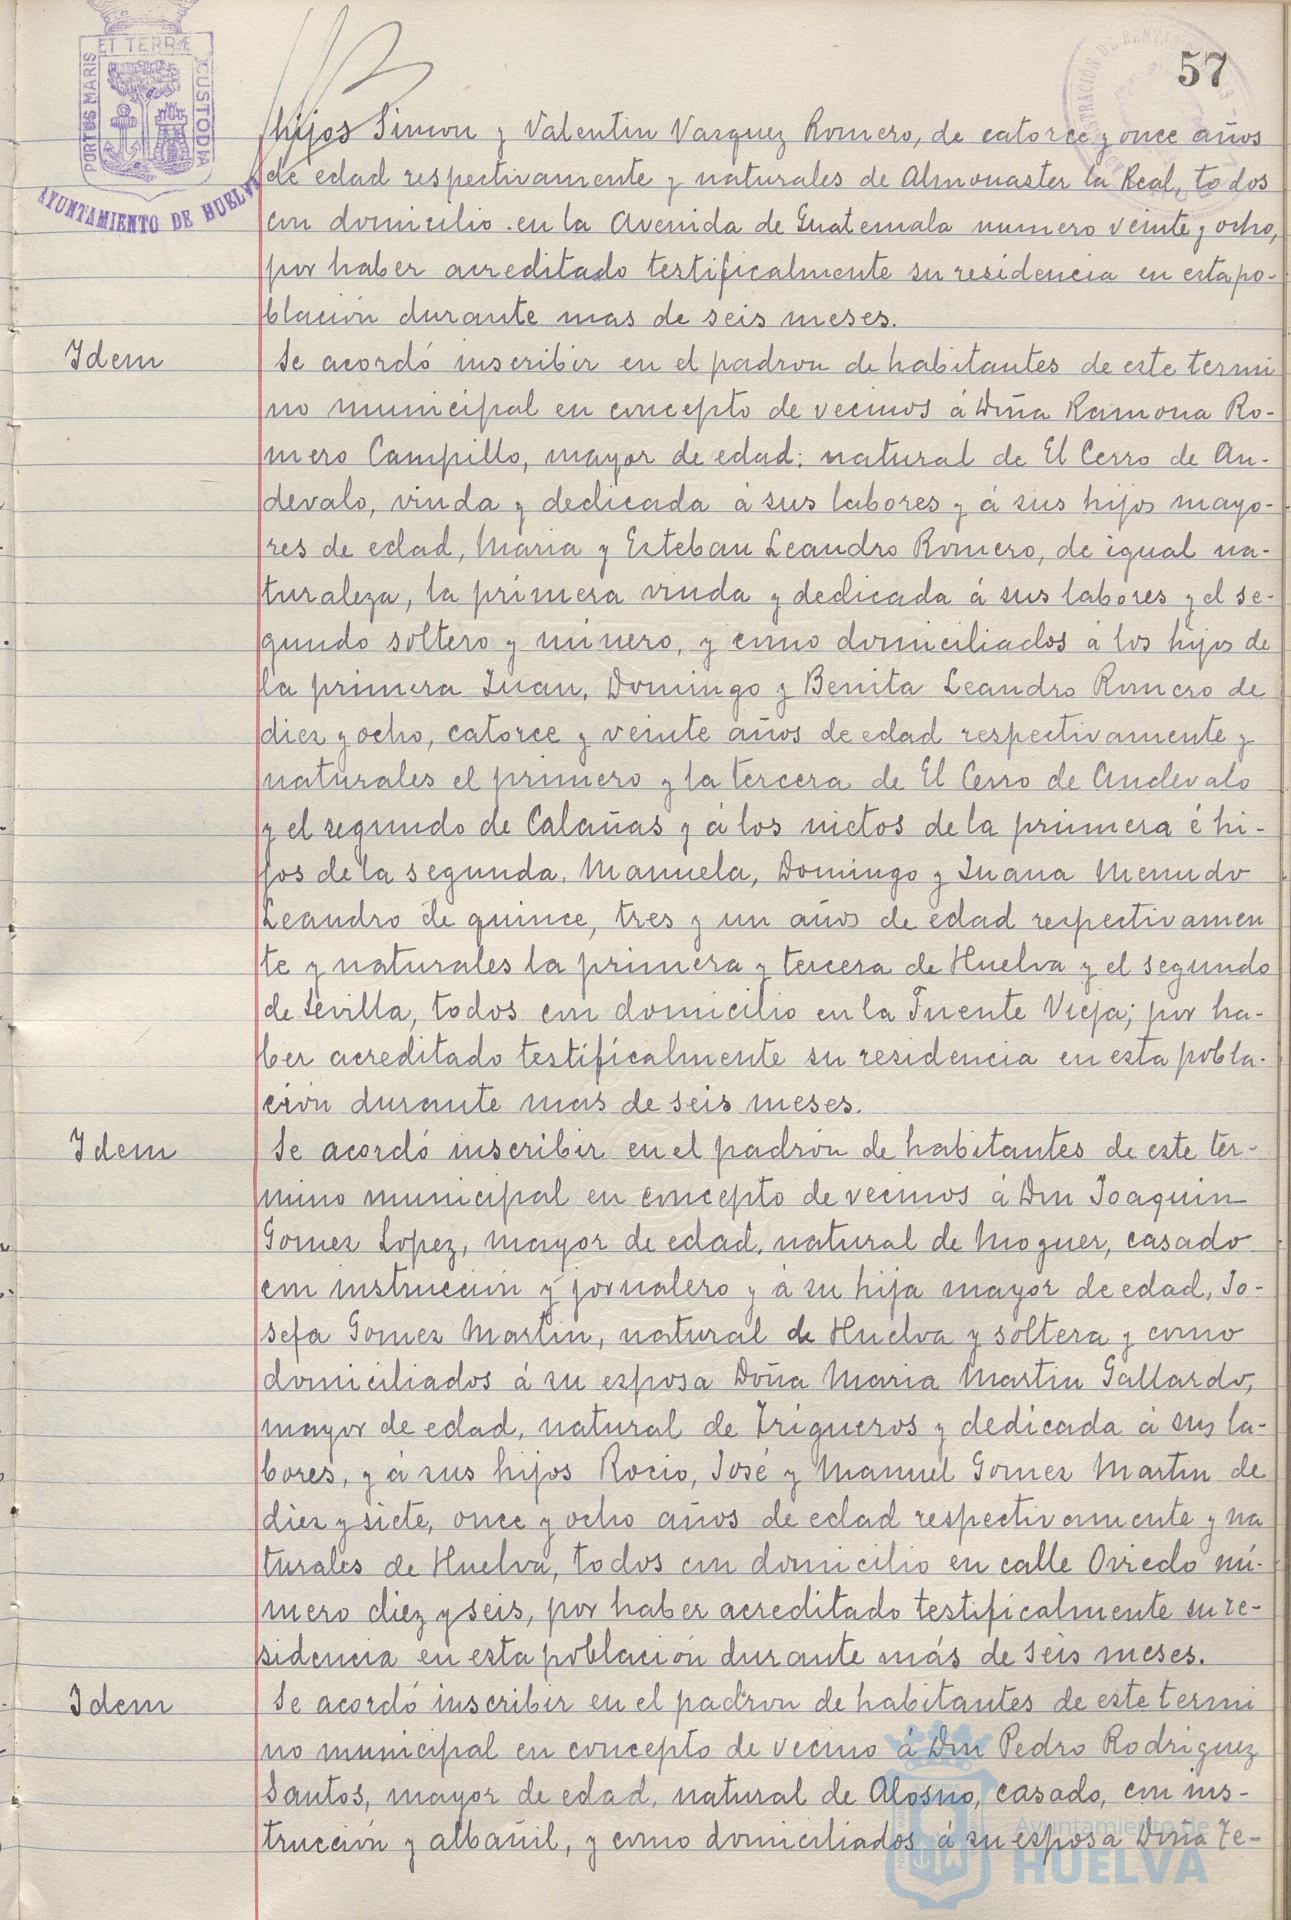 57
ET TERRÆ
PORTUS MARIS
CUSTODIA
AYUNTAMIENTO DE HUELVA
hijos Simon y Valentin Vazquez Romero, de catorce y once años
de edad respectivamente y naturales de Almonaster la Real, todos
con domicilio en la Avenida de Guatemala numero veinte y ocho,
por haber acreditado testificalmente su residencia en esta po-
blación durante mas de seis meses.
Idem
Se acordó inscribir en el padron de habitantes de este termi
no municipal en concepto de vecinos á Doña Ramona Ro-
mero Campillo, mayor de edad; natural de El Cerro de An-
devalo, viuda y dedicada á sus labores y á sus hijos mayo-
res de edad, Maria y Esteban Leandro Romero, de igual na-
turaleza, la primera viuda y dedicada á sus labores y el se-
gundo soltero y minero, y como domiciliados á los hijos de
la primera Juan, Domingo y Benita Leandro Romero de
diez y ocho, catorce y veinte años de edad respectivamente y
naturales el primero y la tercera de El Cerro de Andevalo
y el segundo de Calañas y á los nietos de la primera é hi-
jos de la segunda, Manuela, Domingo y Juana Menudo
Leandro de quince, tres y un años de edad respectivamen
te y naturales la primera y tercera de Huelva y el segundo
de Sevilla, todos con domicilio en la Fuente Vieja; por ha-
ber acreditado testificalmente su residencia en esta pobla-
ción durante mas de seis meses.
Idem
Se acordó inscribir en el padrón de habitantes de este ter-
mino municipal en concepto de vecinos á Don Joaquin
Gomez Lopez, mayor de edad, natural de Moguer, casado
con instrucción y jornalero y á su hija mayor de edad, Jo-
sefa Gomez Martin, natural de Huelva y soltera y como
domiciliados á su esposa Doña Maria Martin Gallardo,
mayor de edad, natural de Trigueros y dedicada á sus la-
bores, y á sus hijos Rocio, José y Manuel Gomez Martin de
diez y siete, once y ocho años de edad respectivamente y na
turales de Huelva, todos con domicilio en calle Oviedo nú-
mero diez y seis, por haber acreditado testificalmente su re-
sidencia en esta población durante más de seis meses.
Idem
Se acordó inscribir en el padron de habitantes de este termi
no municipal en concepto de vecino á Don Pedro Rodriguez
Santos, mayor de edad, natural de Alosno, casado, con ins-
trucción y albañil, y como domiciliados á su esposa Doña Fe-
Ayuntamiento de
HUELVA